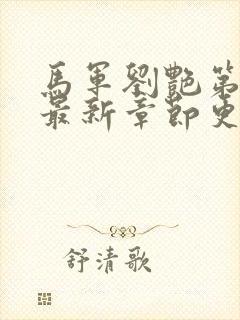 馬軍劉艷第
最新章節更
舒清歌